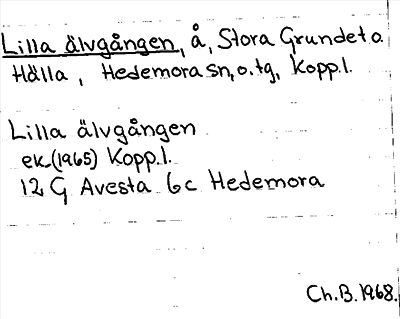 Lilla älvgången, å, Stora Grundet o.
Hälla, Hedemora sn, o. tg, Kopp.l.
Lilla älvgången
ek. (1965) Kopp.l.
12 G Avesta 6c Hedemora
Ch.B. 1968.